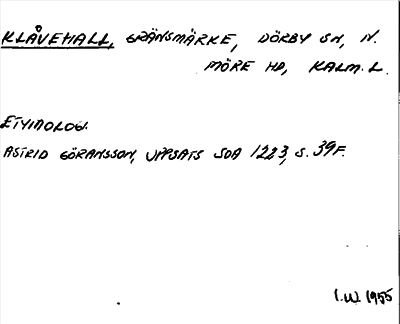 KLÅVEHALL, GRÄNSMÄRKE, DÖRBY SN, N.
MÖRE HD, KALM. L.
ETYMOLOGI.
ASTRID GÖRANSSON, UPPSATS SOA 1223, S. 39F.
I.W. 1955